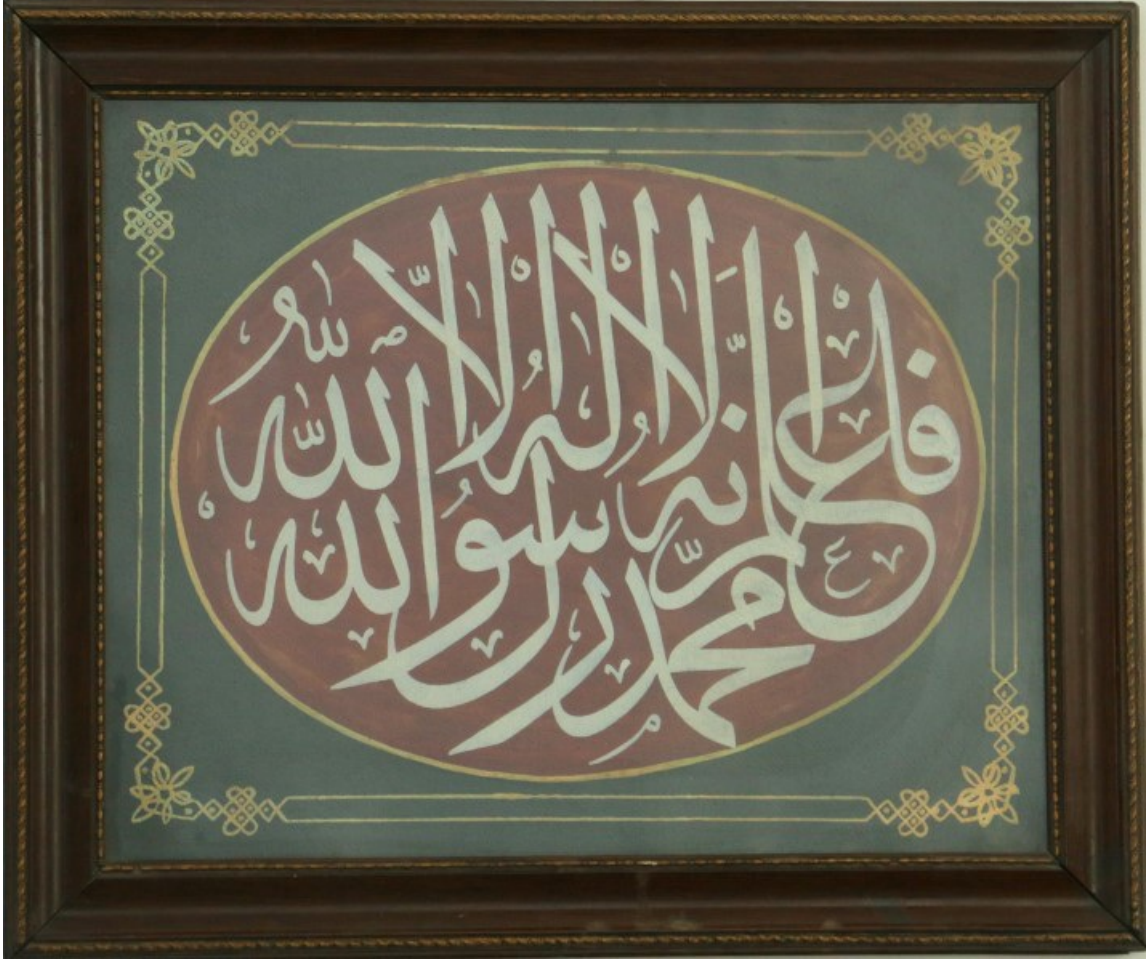 فاعلم انه لا اله الا الله
محمد رسول الله